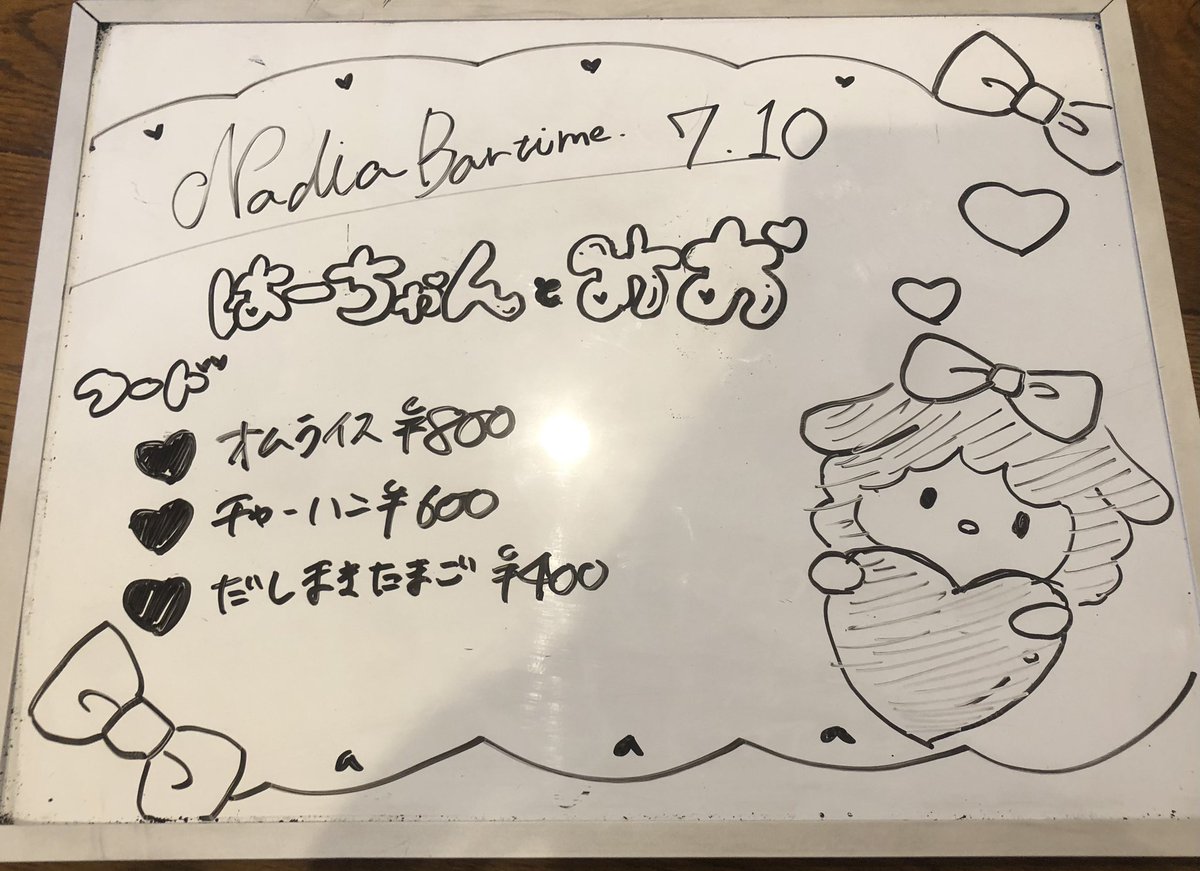 Nadia Bartime. 7.10
はーちゃんとみお
フード
オムライス ¥800
チャーハン ¥600
だしまきたまご ¥400